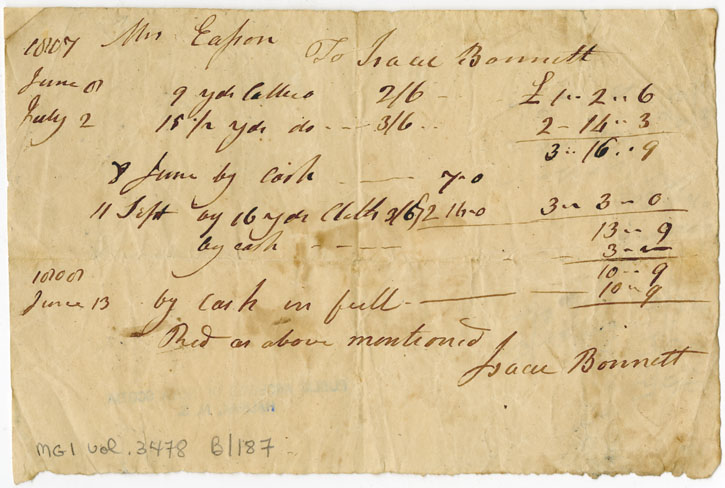 1807 Mrs Eason To Isaac Bonnett
June 8 9 yds Callico 2/6 £ 1 " 2 " 6
July 2 15 1/2 yds do - - - 3/6 2 - 14 - 3
3 " 16 " 9
8 June by Cash 7 - 0
11 Sept by 16 yds Cloth 3/6 £2 16 - 0 3 " 3 - 0
13 " 9
by cash - - - - 3 " -
10 " 9
1808
June 13 by Cash in full 10 " 9
Red as above mentioned
Isaac Bonnett
MG1 vol. 3478 B/187